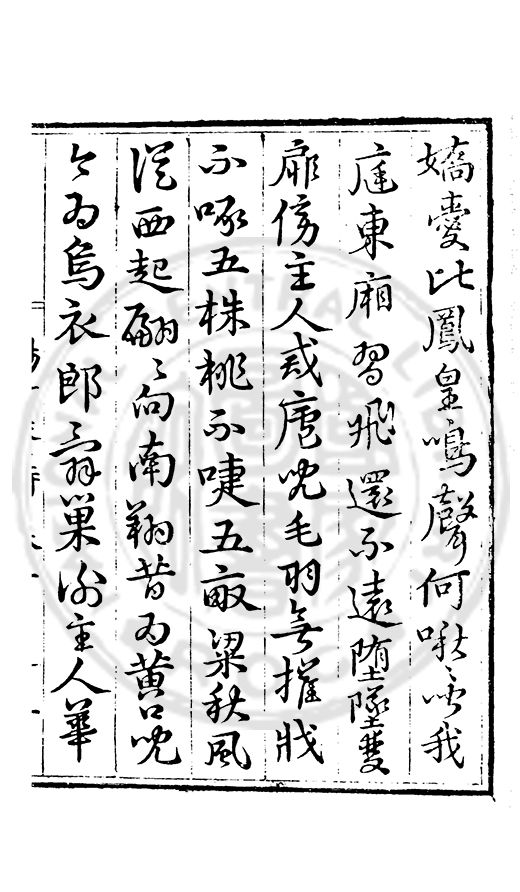 嬌愛比鳳皇鳴聲何啾〻我
庭東廂習飛還不遠墮墜雙
扉傍主人戒虐児毛羽無摧戕
不啄五株桃不啑五畝粱秋風
從西起翩〻向南翔昔為黃口児
今為烏衣郎辭巢謝主人華